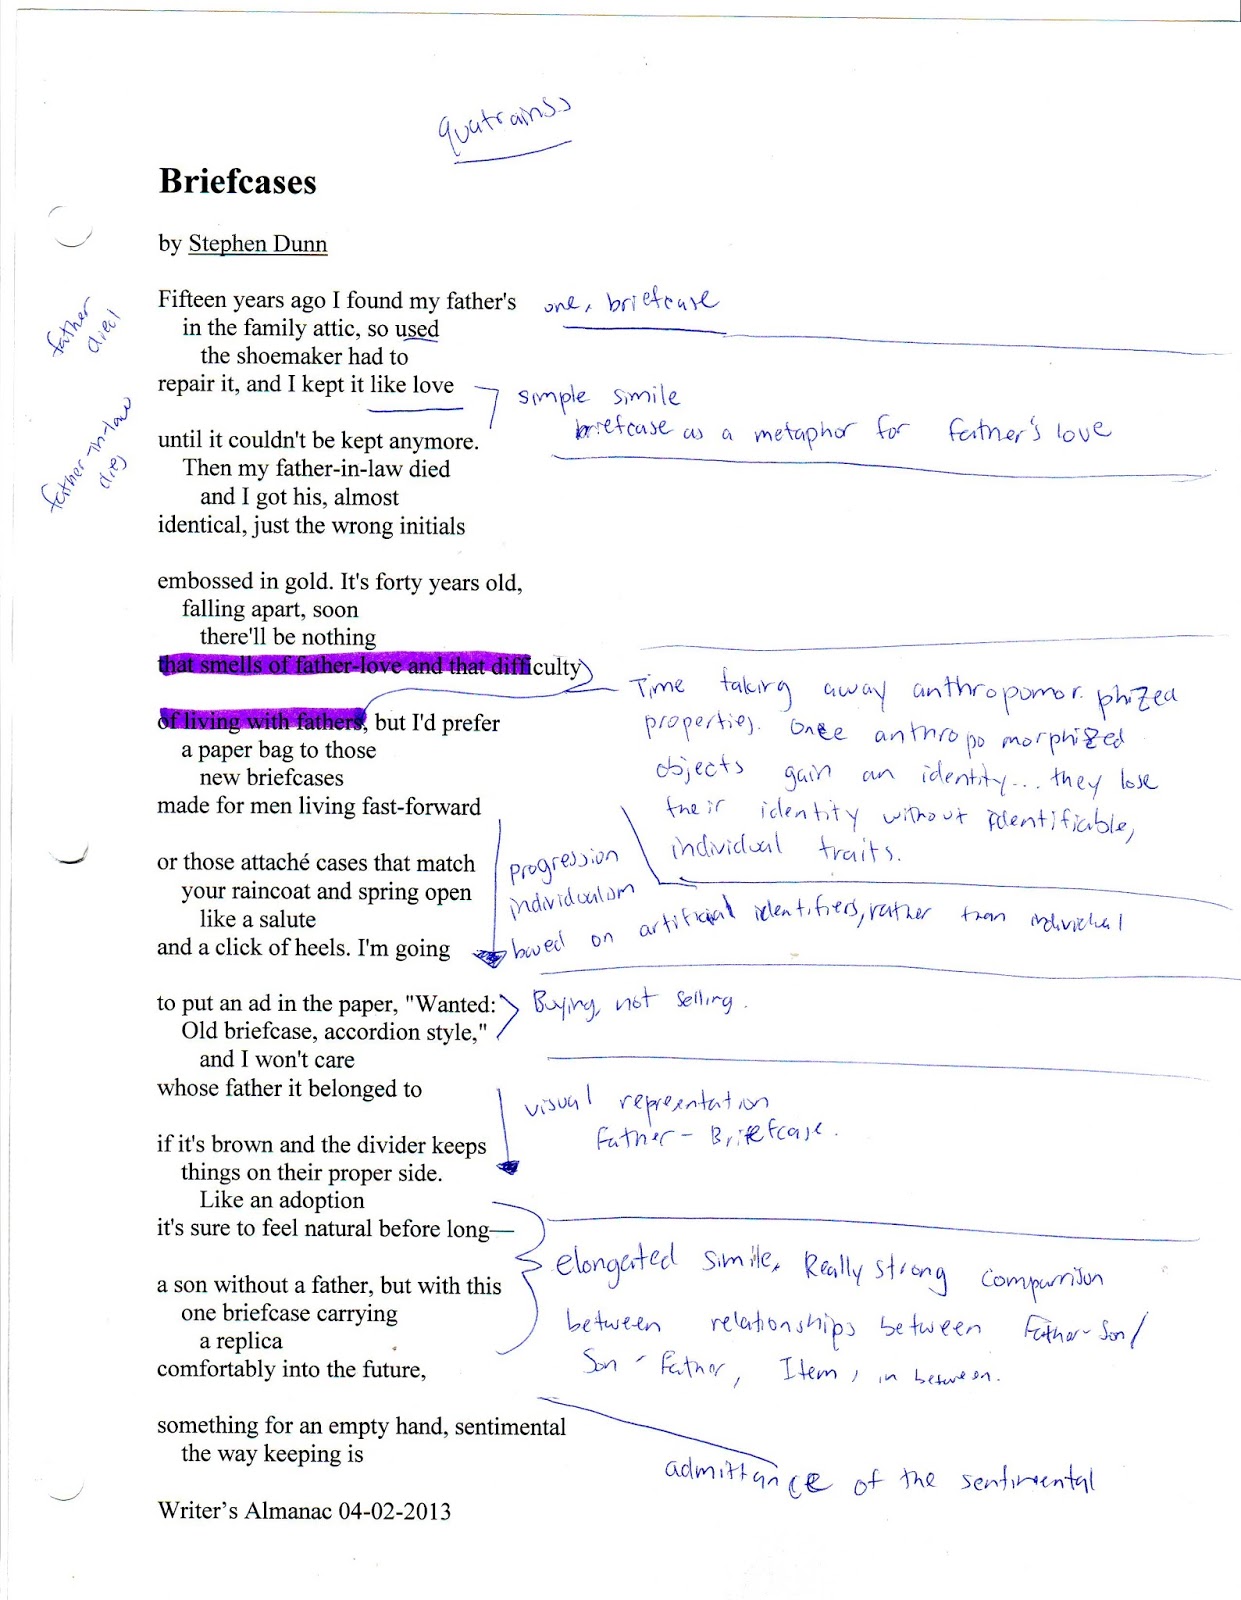 quatrainss
Briefcases
by Stephen Dunn
Fifteen years ago I found my father's
one, briefcase
in the family attic, so used
the shoemaker had to
father
died
repair it, and I kept it like love
simple simile
briefcase as a metaphor for father's love
until it couldn't be kept anymore.
Then my father-in-law died
father-in-law
dies
and I got his, almost
identical, just the wrong initials
embossed in gold. It's forty years old,
falling apart, soon
there'll be nothing
that smells of father-love and that difficulty
of living with fathers, but I'd prefer
a paper bag to those
new briefcases
made for men living fast-forward
Time taking away anthropomor.phized
properties. Once anthropomorphized
objects gain an identity... they lose
their identity without identifiable,
individual traits.
or those attaché cases that match
your raincoat and spring open
like a salute
and a click of heels. I'm going
progression
individualism
based on artificial identifiers, rather than individual
to put an ad in the paper, "Wanted:
Old briefcase, accordion style,"
Buying, not selling.
and I won't care
whose father it belonged to
visual representation
Father - Briefcase.
if it's brown and the divider keeps
things on their proper side.
Like an adoption
it's sure to feel natural before long—
a son without a father, but with this
one briefcase carrying
a replica
comfortably into the future,
elongated simile, Really strong comparrison
between relationships between Father-Son/
Son - Father, Item, in between.
something for an empty hand, sentimental
the way keeping is
admittance of the sentimental
Writer's Almanac 04-02-2013